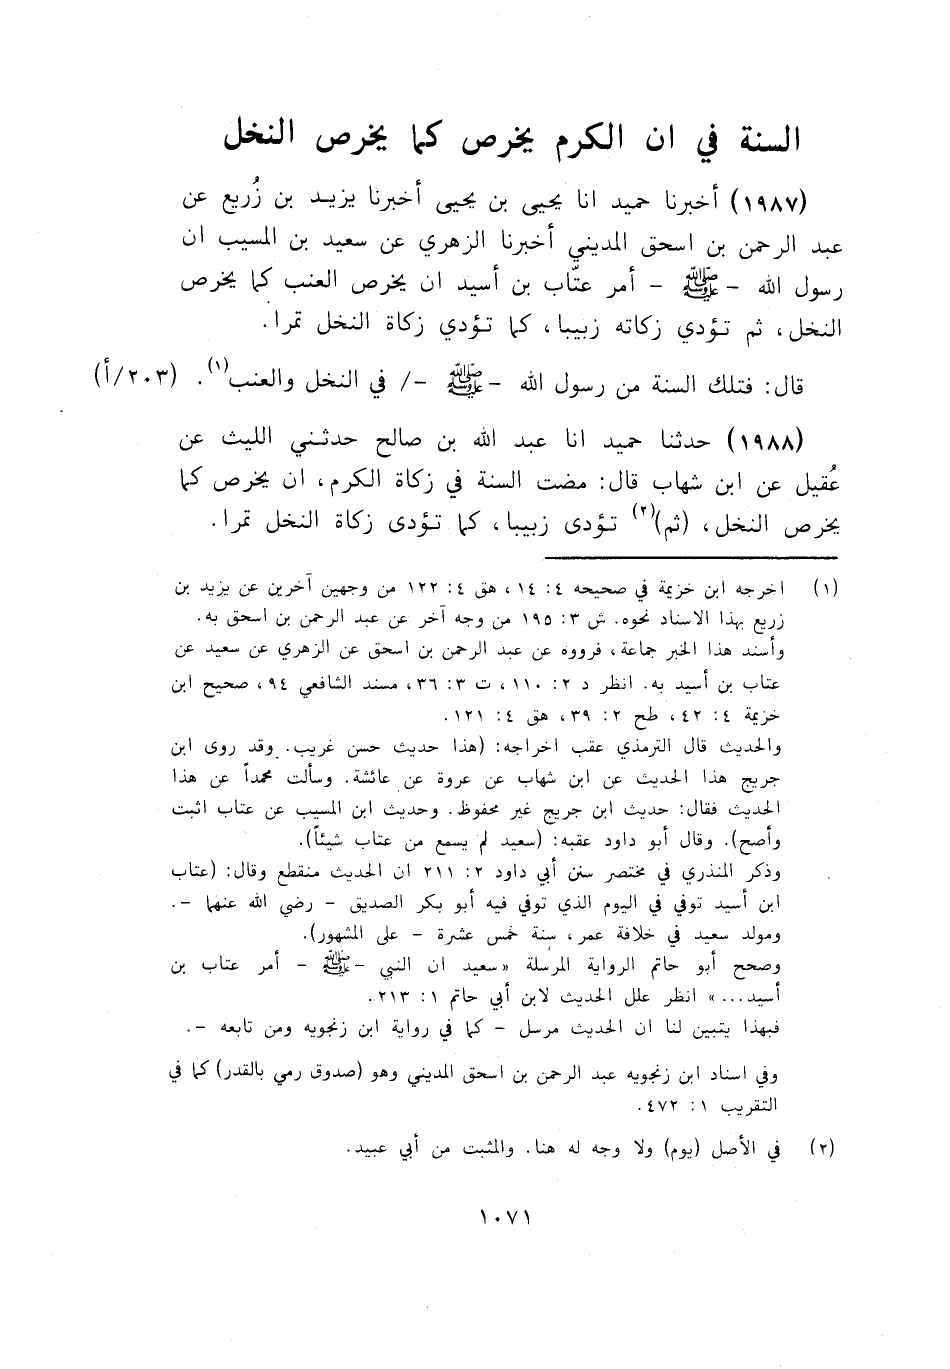 السنة في ان الكرم يخرص كما يخرص النخل
(١٩٨٧) أخبرنا حميد انا يحيى بن يحيى أخبرنا يزيد بن زُريع عن
عبد الرحمن بن اسحق المديني أخبرنا الزهري عن سعيد بن المسيب ان
رسول الله - ﷺ - أمر عتّاب بن أسيد ان يخرص العنب كما يخرص
النخل، ثم تؤدي زكاته زبيبا، كما تؤدي زكاة النخل تمرا.
قال: فتلك السنة من رسول الله - ﷺ -/ في النخل والعنب(١). (٢٠٣/أ)
(١٩٨٨) حدثنا حميد انا عبد الله بن صالح حدثني الليث عن
عُقيل عن ابن شهاب قال: مضت السنة في زكاة الكرم، ان يخرص كما
يخرص النخل، (ثم)(٢) تؤدى زبيبا، كما تؤدى زكاة النخل تمرا.
(١) اخرجه ابن خزيمة في صحيحه ٤: ١٤، هق ٤: ١٢٢ من وجهين آخرين عن يزيد بن
زريع بهذا الاسناد نحوه. ش ٣: ١٩٥ من وجه آخر عن عبد الرحمن بن اسحق به.
وأسند هذا الخبر جماعة، فرووه عن عبد الرحمن بن اسحق عن الزهري عن سعيد عن
عتاب بن أسيد به. انظر د ٢: ١١٠، ت ٣: ٣٦، مسند الشافعي ٩٤، صحيح ابن
خزيمة ٤: ٤٢، طح ٢: ٣٩، هق ٤: ١٢١.
والحديث قال الترمذي عقب اخراجه: (هذا حديث حسن غريب. وقد روى ابن
جريج هذا الحديث عن ابن شهاب عن عروة عن عائشة. وسألت محمداً عن هذا
الحديث فقال: حديث ابن جريج غير محفوظ. وحديث ابن المسيب عن عتاب اثبت
وأصح). وقال أبو داود عقبه: (سعيد لم يسمع من عتاب شيئاً).
وذكر المنذري في مختصر سنن أبي داود ٢: ٢١١ ان الحديث منقطع وقال: (عتاب
ابن أسيد توفي في اليوم الذي توفي فيه أبو بكر الصديق - رضي الله عنهما -.
ومولد سعيد في خلافة عمر، سنة خمس عشرة - على المشهور).
وصحح أبو حاتم الرواية المرسلة «سعيد ان النبي - ﷺ - أمر عتاب بن
أسيد...» انظر علل الحديث لابن أبي حاتم ١: ٢١٣.
فبهذا يتبين لنا ان الحديث مرسل - كما في رواية ابن زنجويه ومن تابعه -.
وفي اسناد ابن زنجويه عبد الرحمن بن اسحق المديني وهو (صدوق رمي بالقدر) كما في
التقريب ١: ٤٧٢.
(٢) في الأصل (يوم) ولا وجه له هنا. والمثبت من أبي عبيد.
١٠٧١